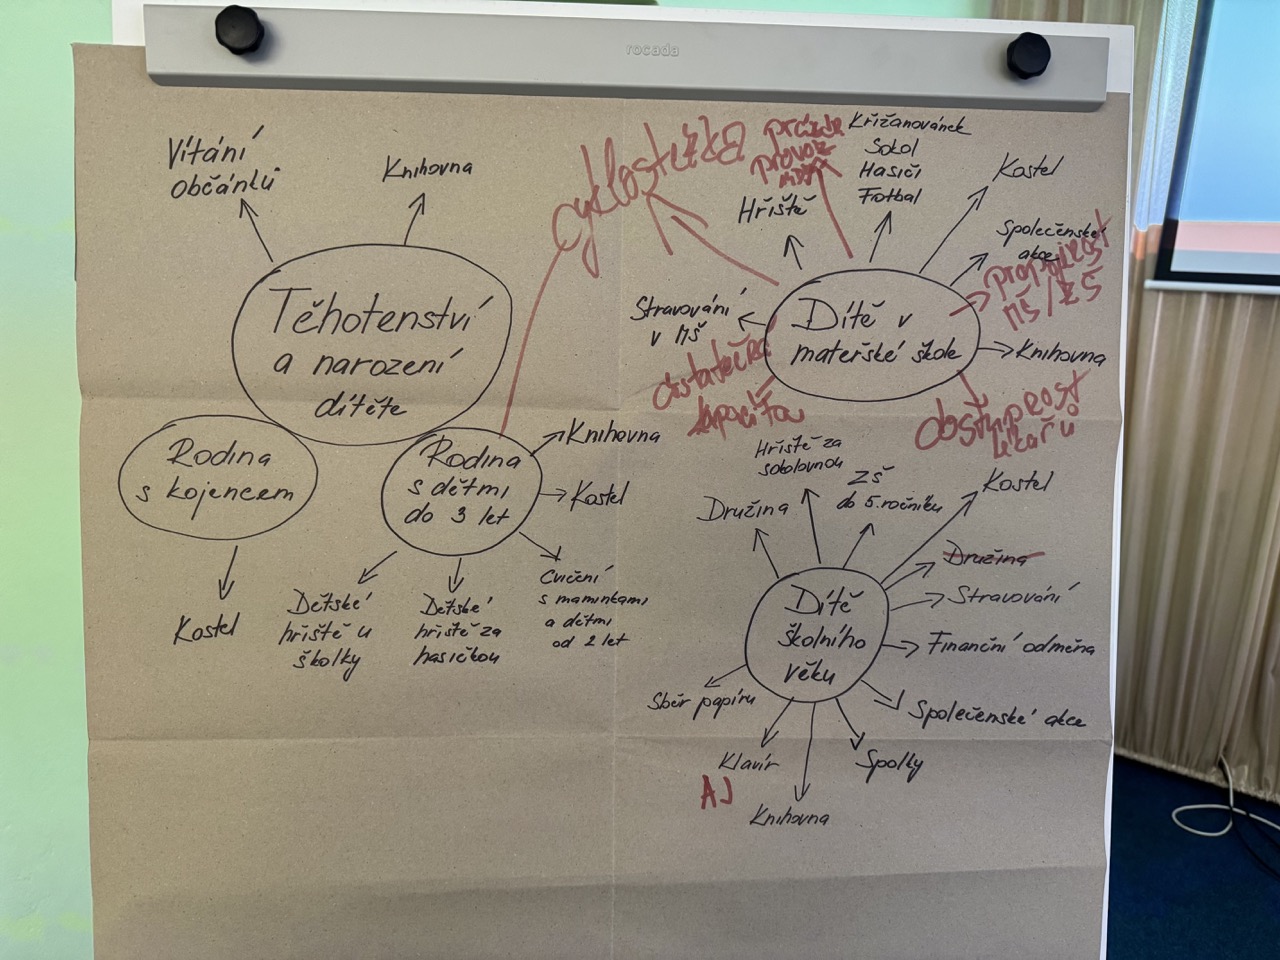 rocada
Vítání
občánků
Knihovna
Těhotenství
a narození
dítěte
Rodina
s kojencem
Kostel
Rodina
s dětmi
do 3 let
Knihovna
Kostel
Cvičení
s maminkami
a dětmi
od 2 let
Dětské
hřiště u
školky
Dětské
hřiště za
hasičkou
cyklostezka
Dítě v
mateřské škole
Stravování
v MŠ
Hřiště
provoz
Křižanovánek
Sokol
Hasiči
Fotbal
Kostel
Společenské
akce
propojenost
MŠ/ZŠ
Knihovna
dostupnost
lékařů
kapacitou
Dítě
školního
věku
Družina
Hřiště za
sokolovnou
ZŠ
do 5. ročníku
Kostel
Družina
Stravování
Finanční odměna
Společenské akce
Spolky
Knihovna
Klavír
AJ
Sběr papíru